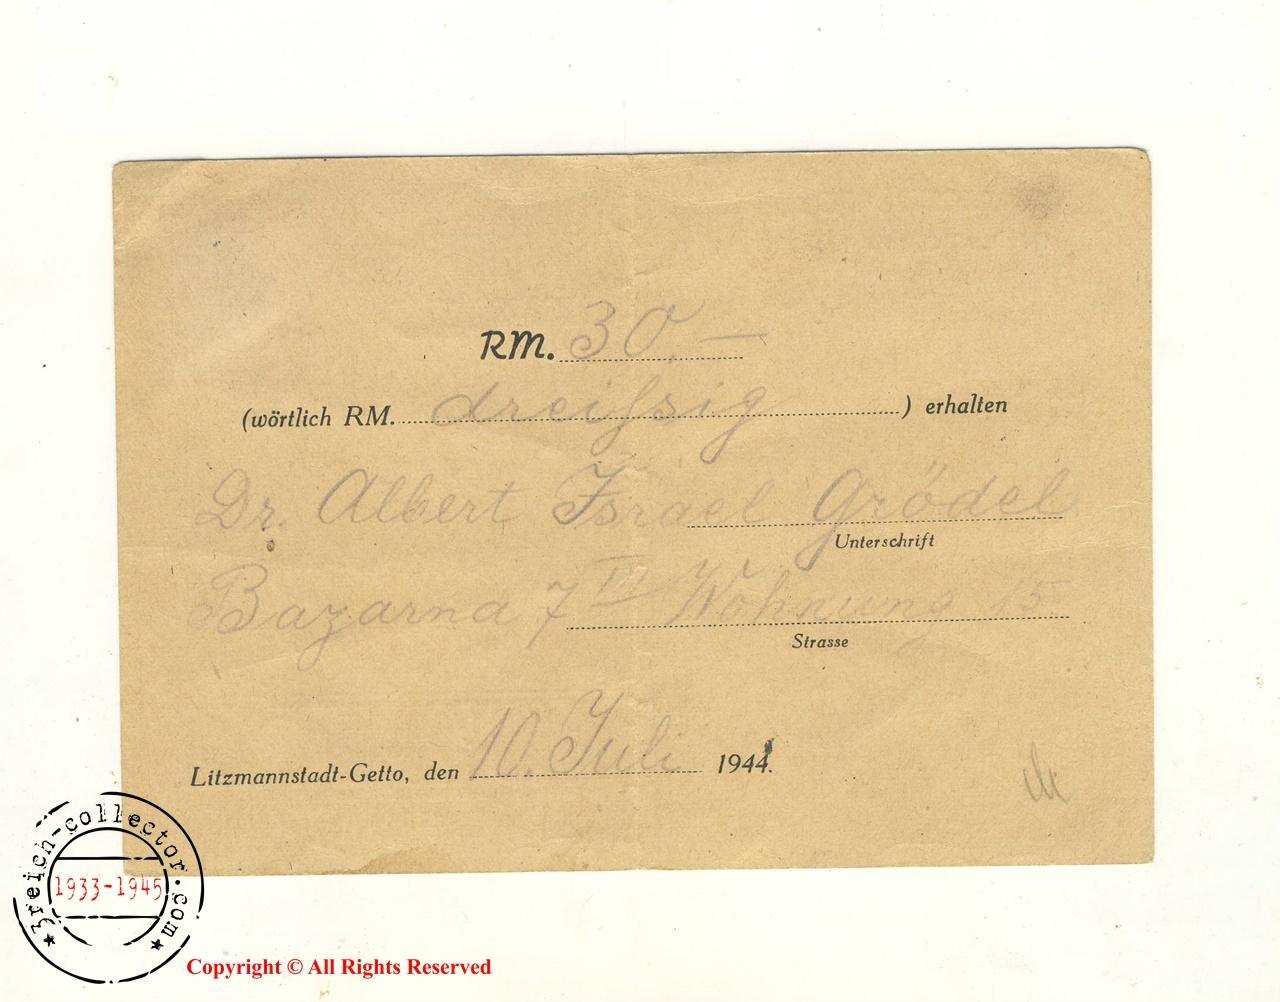 RM. 30,—
(wörtlich RM. dreißsig ) erhalten
Dr. Albert Israel Grödel
Unterschrift
Bazarna 7 Wohnung 15
Strasse
Litzmannstadt-Getto, den 10. Juli 1944.
3reich-collector.com
1933-1945
Copyright © All Rights Reserved